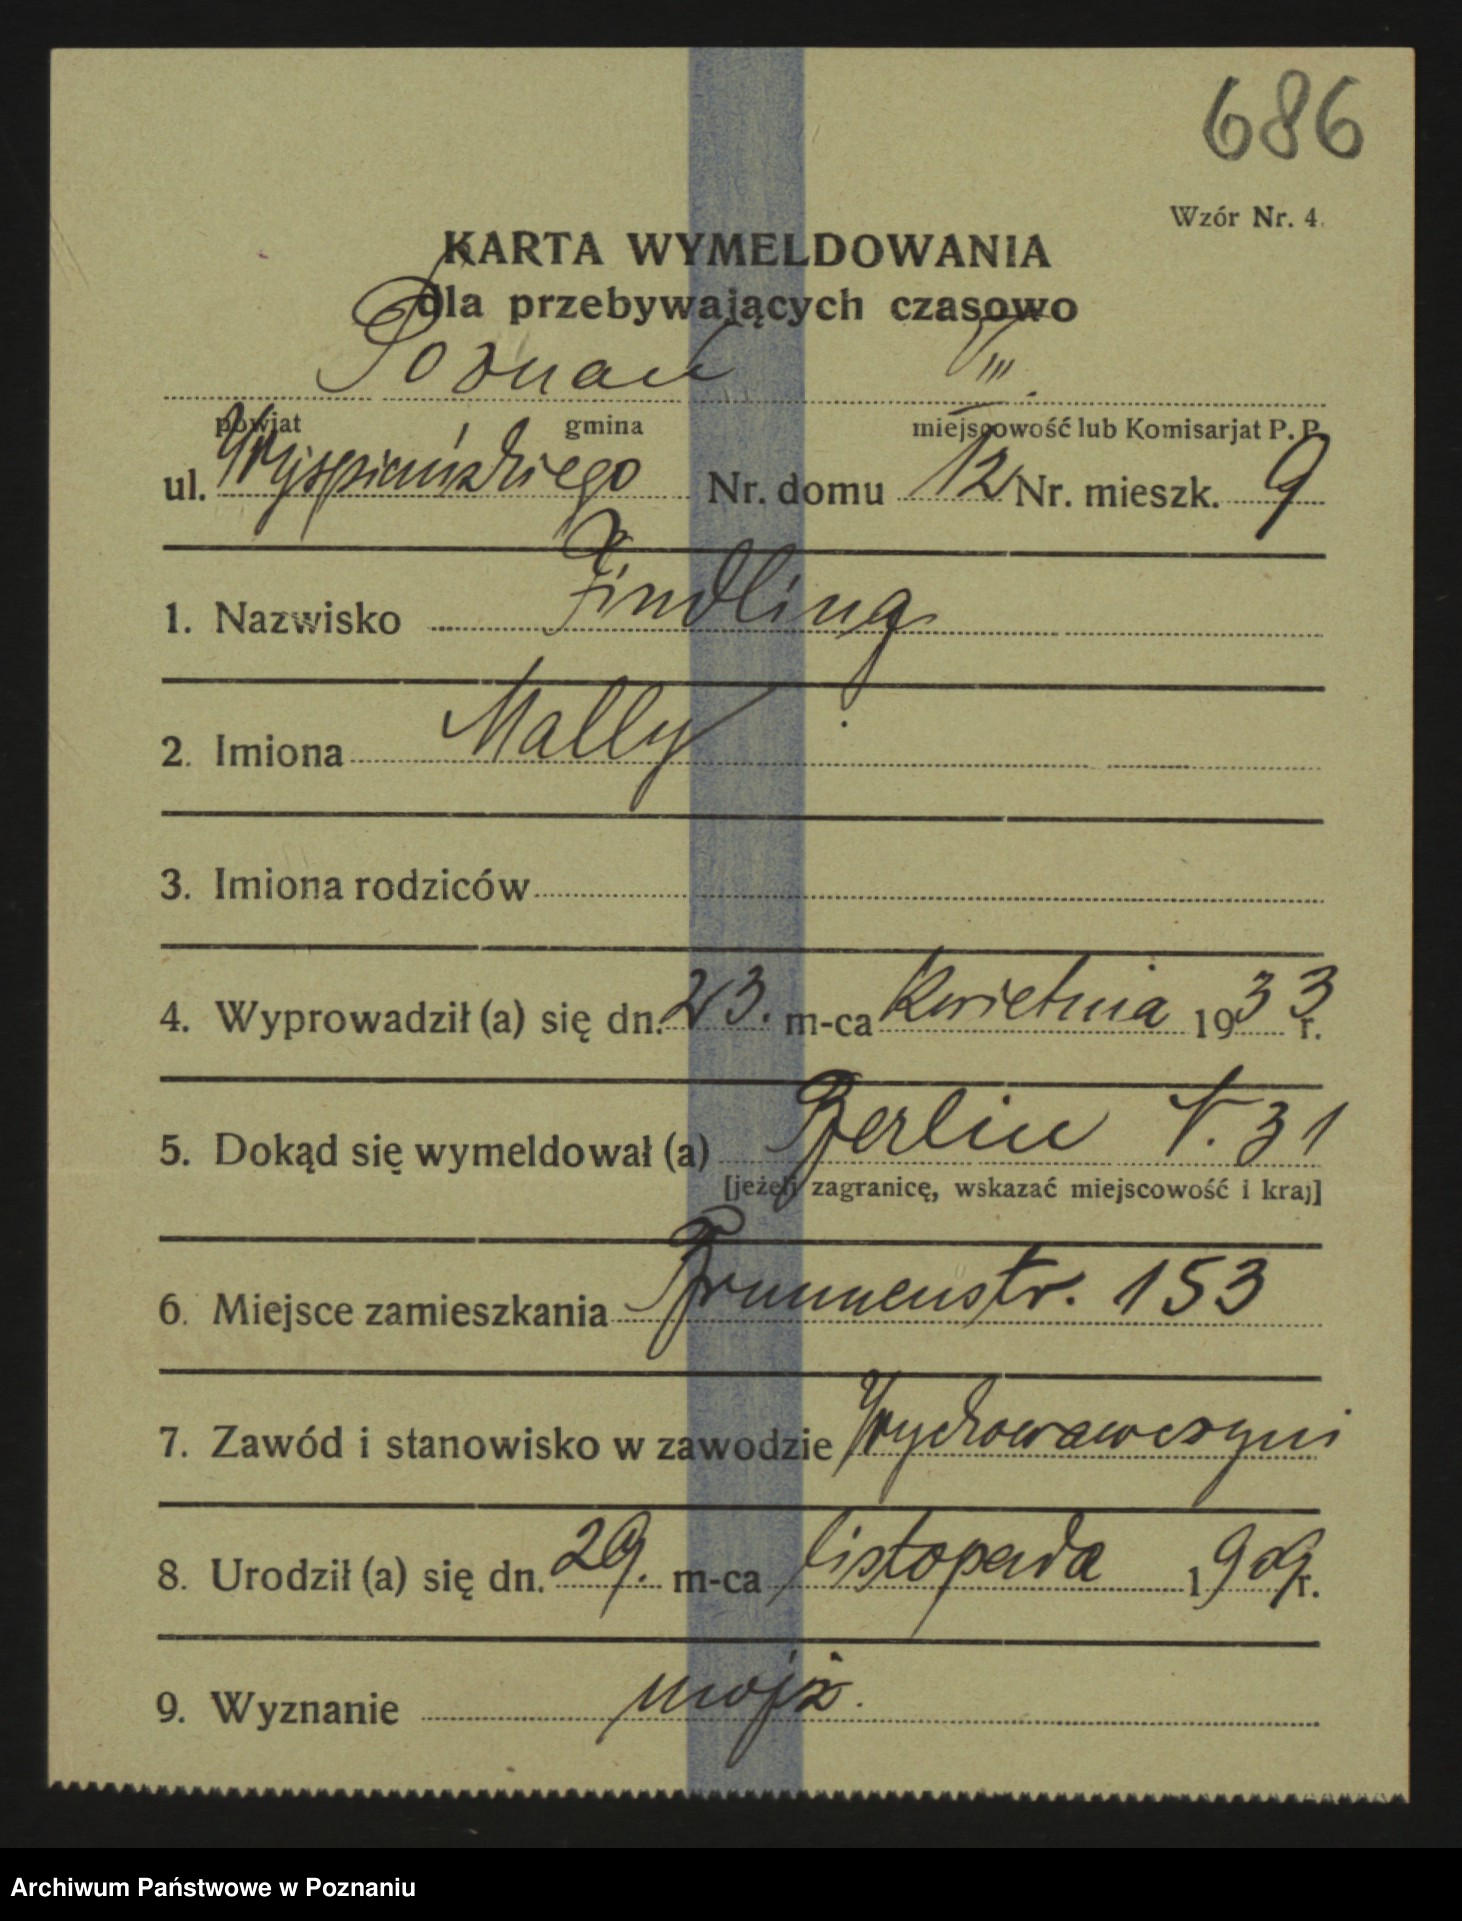 686
Wzór Nr. 4.
KARTA WYMELDOWANIA
dla przebywających czasowo
Poznań VIII.
powiat gmina miejscowość lub Komisarjat P. P.
ul. Wyspiańskiego Nr. domu 12 Nr. mieszk. 9
1. Nazwisko Findling
2. Imiona Mally
3. Imiona rodziców
4. Wyprowadził (a) się dn. 23. m-ca Kwietnia 1933 r.
5. Dokąd się wymeldował (a) Berlin N. 31
[jeżeli zagranicę, wskazać miejscowość i kraj]
6. Miejsce zamieszkania Brunnenstr. 153
7. Zawód i stanowisko w zawodzie Wychowawczyni
8. Urodził (a) się dn. 29. m-ca listopada 1909 r.
9. Wyznanie mojż.
Archiwum Państwowe w Poznaniu